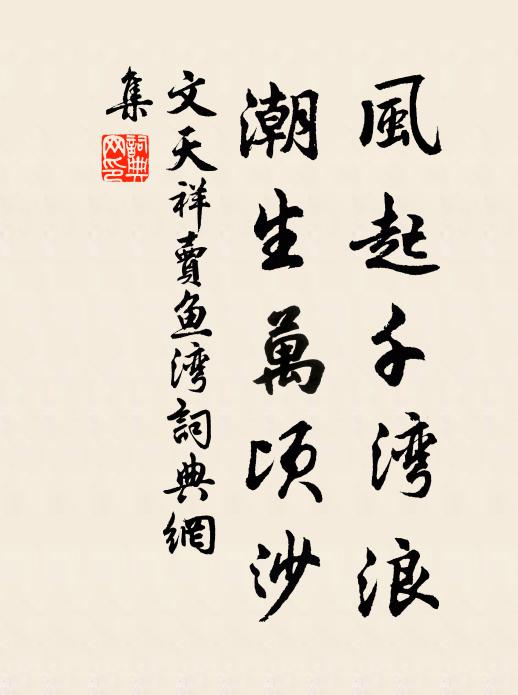 風起千湾浪
潮生萬頃沙
文天祥賣魚湾詞典網
集
詞典網印